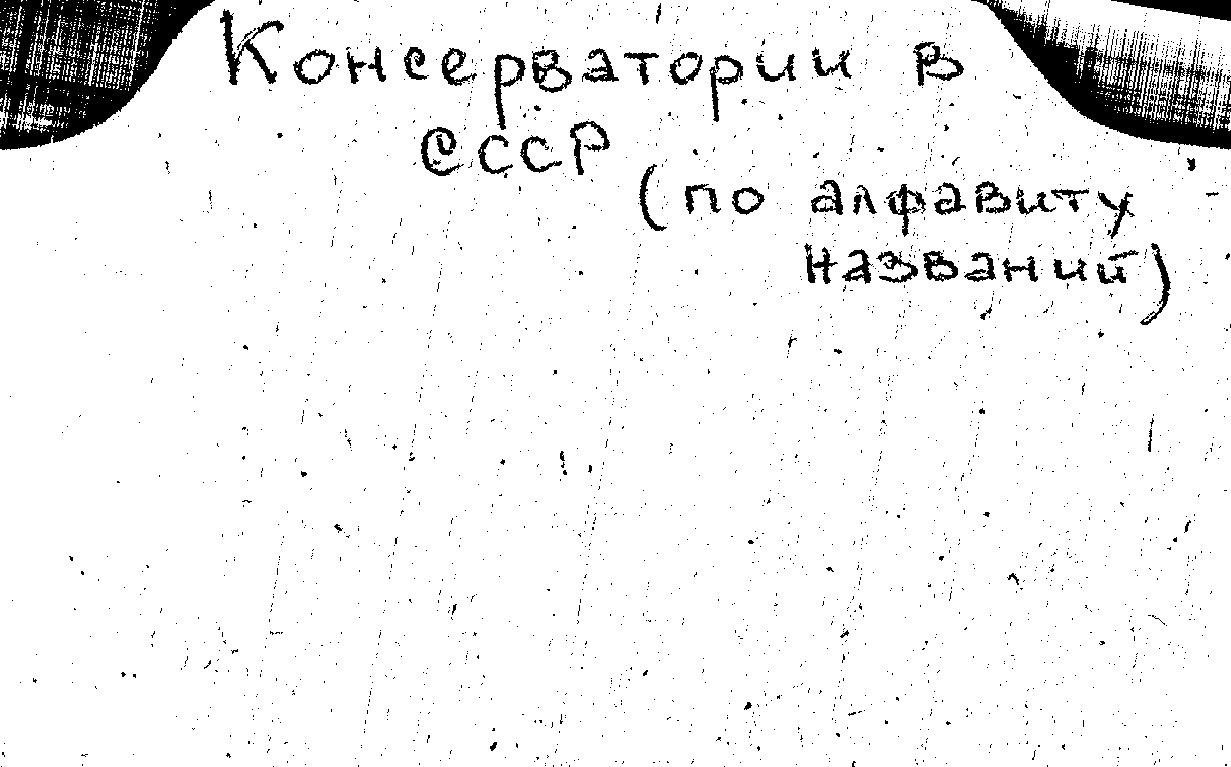 Консерватории в
СССР
(по алфавиту
названий)